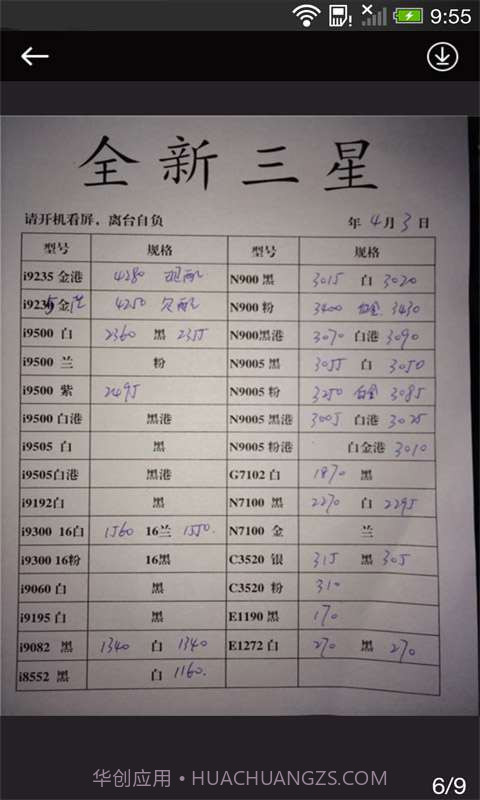 9:55
全新三星
请开机看屏，离台自负 年 4月 3日
型号 规格 型号 规格
i9235 金港 4280 N900 黑 3015 白 3020
金 4250 欠配 N900 粉 3400 白金 3430
i9500 白 2360 黑 2355 N900黑港 3070 白港 3090
i9500 兰 粉 N9005 黑 3055 白 3050
i9500 紫 2495 N9005 粉 3250 白金 3085
i9500 白港 黑港 N9005 黑港 3005 白港 3025
i9505 白 黑 N9005 粉港 白金港 3010
i9505白港 黑港 G7102 白 1870 黑
i9192白 黑 N7100 黑 2270 白 2295
i9300 16白 1560 16兰 1550. N7100 金 兰
i9300 16粉 16黑 C3520 银 315 黑 305
i9060 白 黑 C3520 粉 310
i9195 白 黑 E1190 黑 170
i9082 黑 1340 白 1340 E1272 白 270 黑 270
i8552 黑 白 1160.
华创应用·HUACHUANGZS.COM
6/9